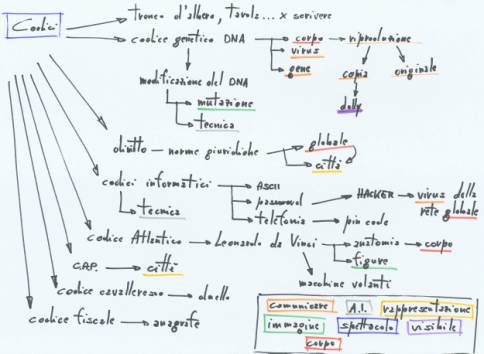 Codici
tronco d'albero, tavola... x scrivere
codice genetico DNA → corpo → riproduzione
virus
gene
copia originale
dolly
modificazione del DNA
mutazione
tecnica
diritto — norme giuridiche → globale
città
codici informatici → ASCII
password → HACKER → virus della
rete globale
tecnica
telefonia → pin code
codice Atlantico → Leonardo da Vinci → anatomia → corpo
figure
macchine volanti
C.A.P. → città
codice cavalleresco → duello
codice fiscale → anagrafe
comunicare A.I. rappresentazione
immagine spettacolo visibile
corpo